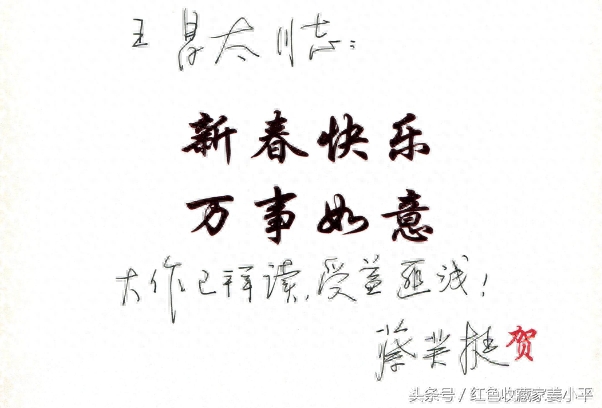 王太同志：
新春快乐
万事如意
大作已拜读，受益匪浅！
蔡英挺 贺
头条号／红色收藏家姜小平